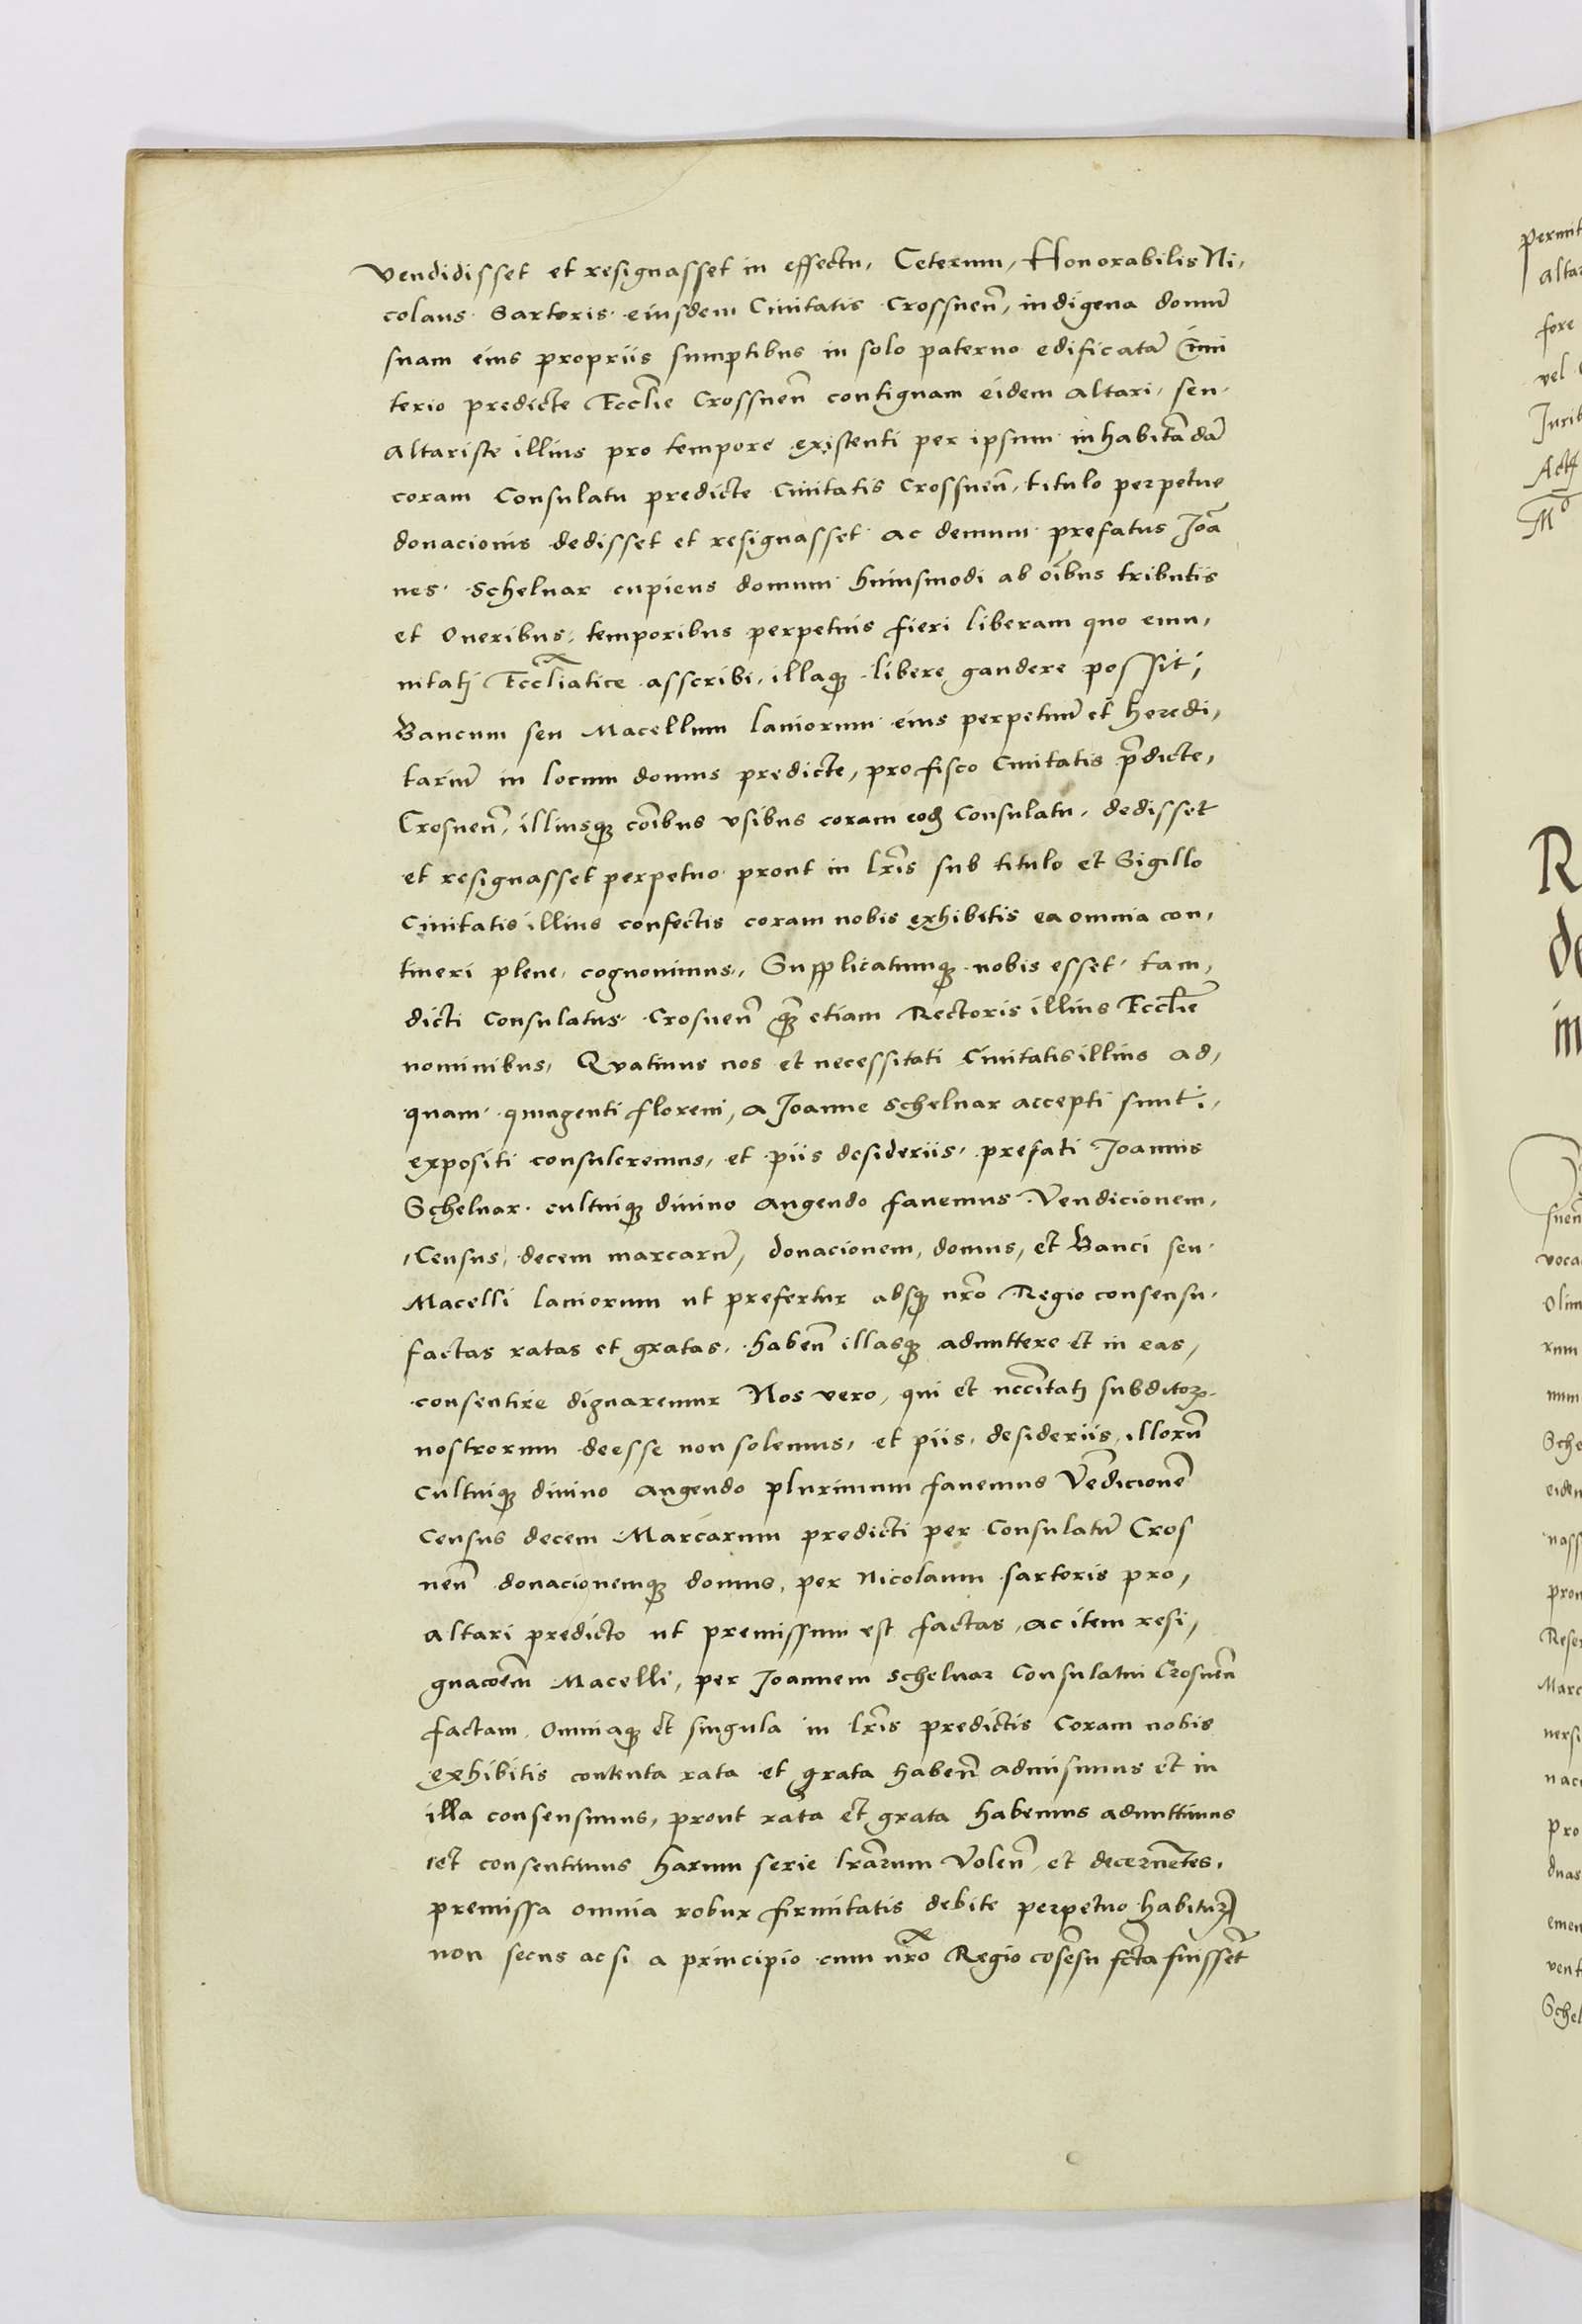 vendidisset et resignasset in effectu, Ceterum, Honorabilis Ni,
colaus Sartoris eiusdem Ciuitatis Crossnen̄, indigena domū
suam eius propriis sumptibus in solo paterno edificatā Cimi
terio predicte Eccl̄ie Crossnen̄ contiguam eidem altari, seu
Altariste illius pro tempore existenti per ipsum inhabitādā
coram Consulatu predicte Ciuitatis Crossnen̄, titulo perpetue
donacionis dedisset et resignasset ac demum prefatus Joā
nes Schelnar cupiens domum huiusmodi ab oībus tributis
et Oneribus, temporibus perpetuis fieri liberam quo emu,
nitatj Eccl̄iatice asscribi, illaqꝫ libere gaudere possit,
Bancum seu Macellum laniorum eius perpetuū et heredi,
tariū in locum domus predicte, pro fisco Ciuitatis p̄dicte,
Crosnen̄, illiusqꝫ cōibus vsibus coram eodꝫ Consulatu, dedisset
et resignasset perpetuo prout in lr̄is sub titulo et Sigillo
Ciuitatis illius confectis coram nobis exhibitis ea omnia con,
tineri plene, cognouimus, Supplicatumqꝫ nobis esset, tam,
dicti Consulatus Crosnen̄ qꝫ etiam Rectoris illius Eccl̄ie
nominibus, Quatinus nos et necessitati Ciuitatis illius ad,
quam quingenti floreni, a Joanne Schelnar accepti sunt,
expositi consuleremus, et piis desideriis prefati Joannis
Schelnar cultuiqꝫ diuino augendo fauemus Vendicionem,
Census, decem marcarū, donacionem, domus, et Banci seu
Macelli laniorum ut prefertur absqꝫ nr̄o Regio consensu
factas ratas et gratas, haben̄ illasqꝫ admittere et in eas,
consentire dignaremur Nos vero, qui et necc̄itatj subditoꝝ
nostrorum deesse non solemus, et piis, desideriis, illorū
Cultuiqꝫ diuino augendo plurimum fauemus Vēdicionē
Census decem Marcarum predicti per Consulatū Cros
nen̄ donacionemqꝫ domus, per Nicolaum sartoris pro,
altari predicto ut premissum est factas, ac item resi,
gnacōem Macelli, per Joannem Schelnar Consulatui Crosnen̄
factam, Omniaqꝫ et singula in lr̄is predictis Coram nobis
exhibitis contenta rata et grata haben̄ admisimus et in
illa consensimus, prout rata et grata habemus admittimus
et consentimus harum serie lrārum Volen̄, et decernētes,
premissa omnia robur firmitatis debite perpetuo habituꝝ
non secus acsi a principio cum nr̄o Regio cōsēsu fc̄ta fuissēt